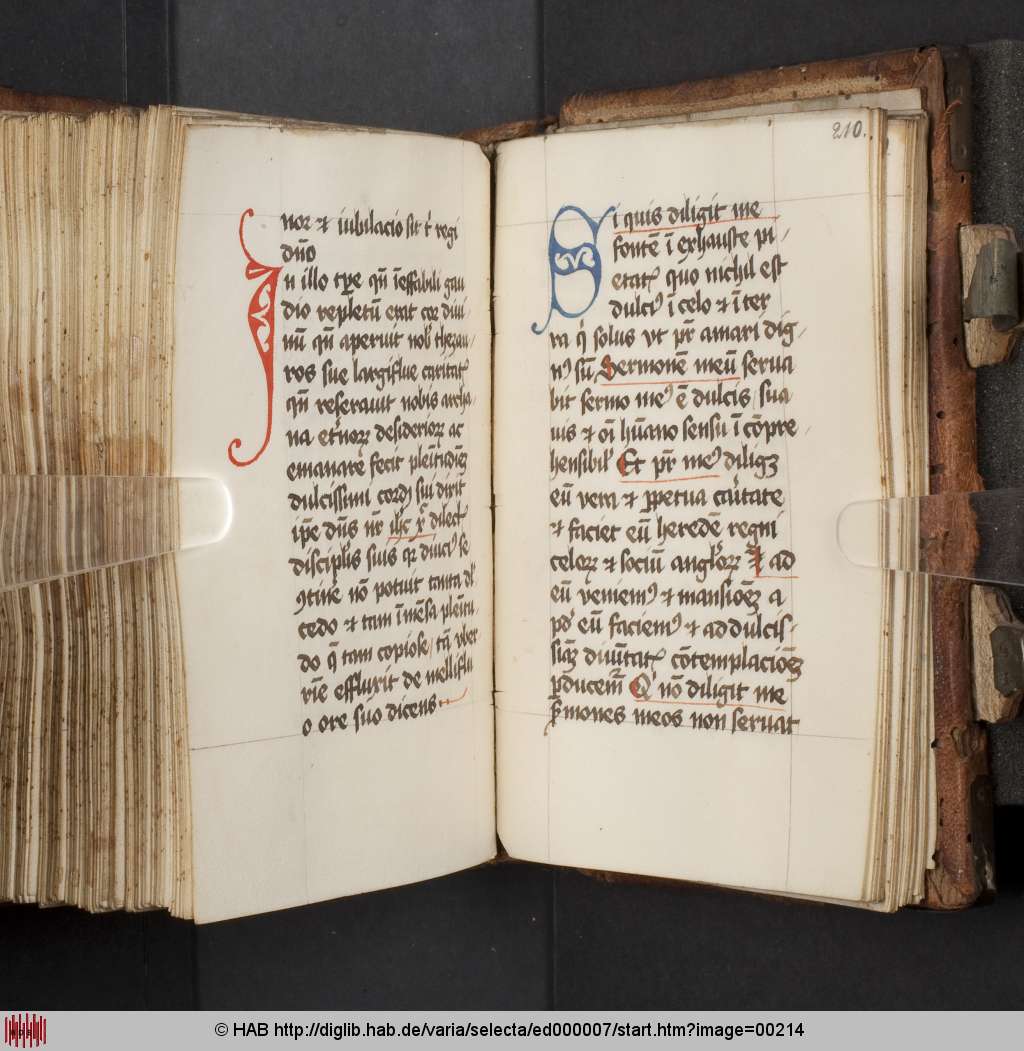 nor et iubilacio sit t' regi
dño
In illo tp̱e qñ īeffabili gau
dio repletū erat cor diui
nū qñ aperuit nob' thezau
ros sue largiflue caritatꝭ
qñ reserauit nobis archa
na et'norꝝ desideriorꝝ ac
emanare fecit plēitudīeꝫ
dulcissimi cordꝭ sui dixit
ip̄e dñs nr̄ ih̄c xp̄c dilectꝭ
discipl'is suis qꝛ diuciꝰ se
ꝯtin'e nō potuit tanta dl'
cedo et tam īmēsa plēitu
do qͣ tam copiose / tā vber
rīe effluxit de melliflu
o ore suo dicens
210.
Si quis diligit me
fontē īexhauste pi
etatꝭ quo nichil est
dulciꝰ ī celo et ī ter
ra qͥ solus vt pr̄ amari dig
nꝰ sū Sermonē meū serua
bit sermo meꝰ ē dulcis / sua
uis et oī hūano sensu īcōpre
hensibil' Et pr̄ meꝰ diligꝫ
eū vera et ꝑpetua caritate
et faciet eū heredē regni
celorꝝ et sociū angl'orꝝ Et ad
eū veniemꝰ et mansiōeꝫ a
pd' eū faciemꝰ et ad dulcis
simā diuītatꝭ cōtemplaciōeꝫ
ꝑducemꝰ Qͥ nō diligit me
sermones meos non seruat
© HAB http://diglib.hab.de/varia/selecta/ed000007/start.htm?image=00214